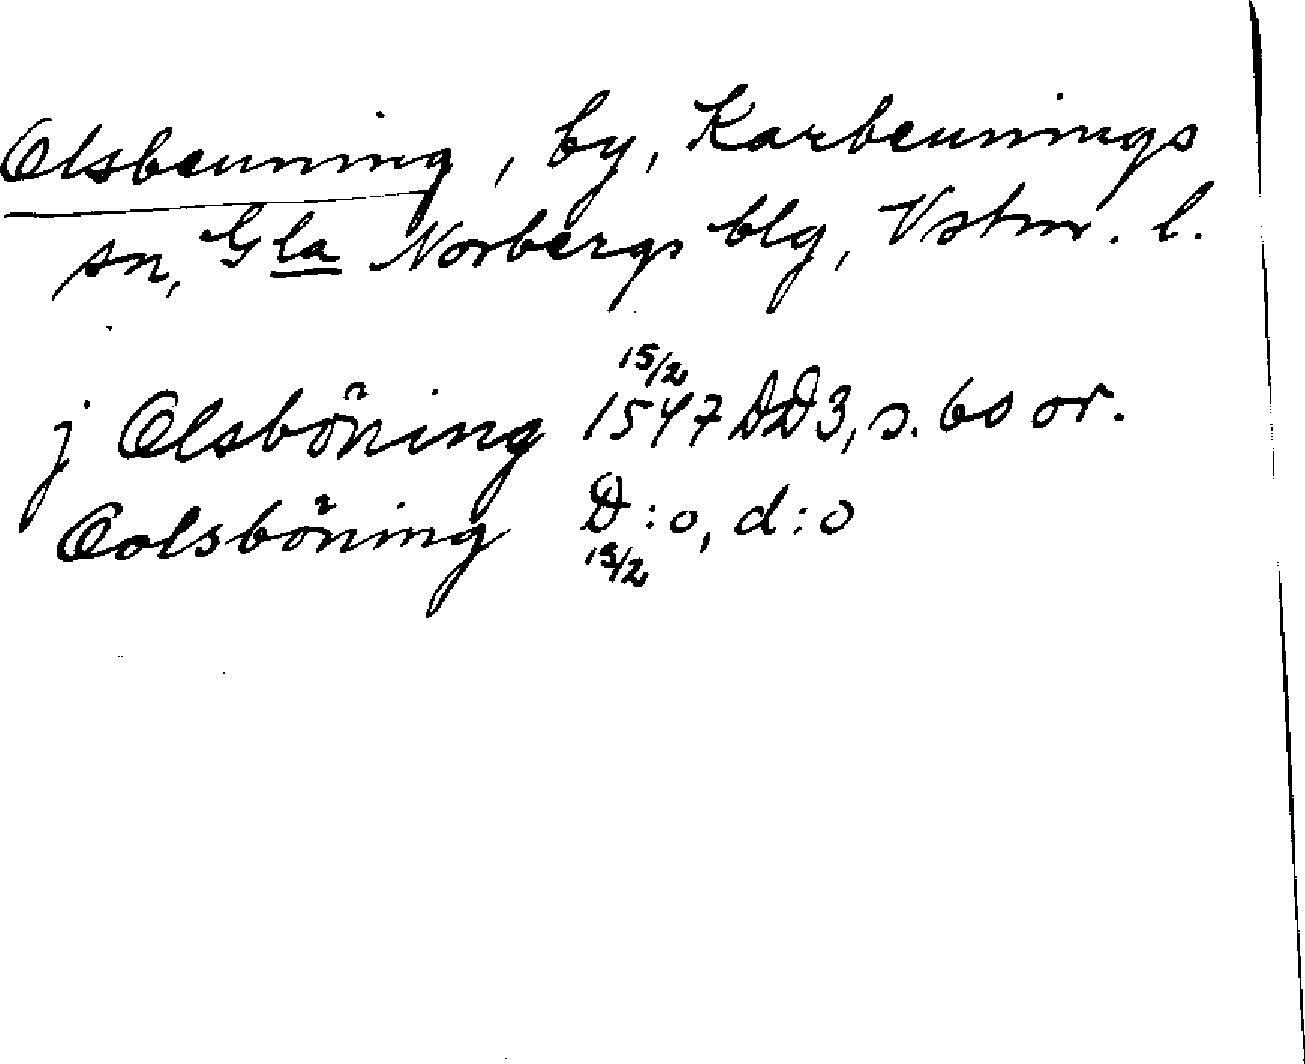 Olsbenning, by, Karbennings
sn, Gla Norbergs blg, Vstm. l.
15/2
j Olsböning 1547 DD3, s. 60 or.
Oolsböning D:o, d:o
15/2